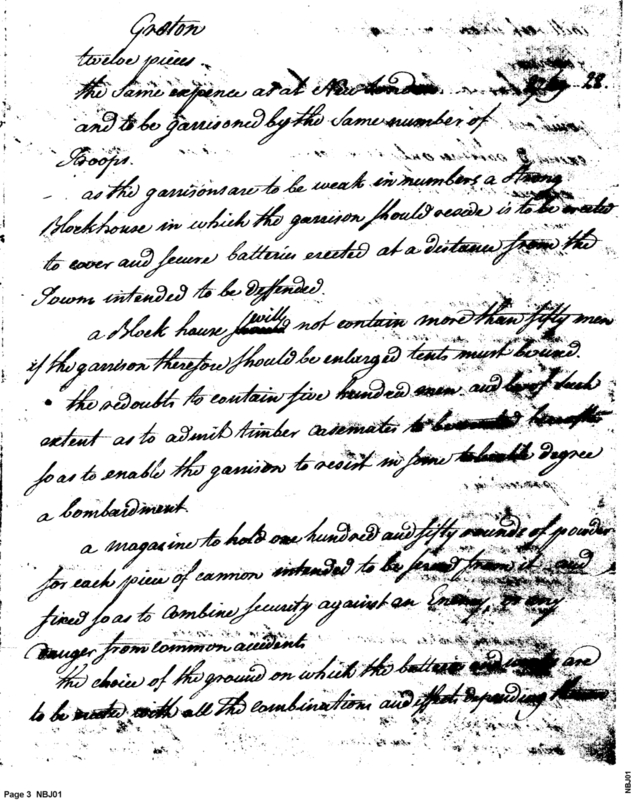 Groton
twelve pieces
the same expence as at New London 28.
and to be garrisoned by the same number of
Troops.
as the garrisons are to be weak in numbers, a strong
Blockhouse in which the garrison should reside is to be erected
to cover and secure batteries erected at a distance from the
Towns intended to be deffended.
a Block house should will not contain more than fifty men
if the garrison therefore should be enlarged tents must be used.
the redoubts to contain five hundred men and be of such
extent as to admit timber casemates to be erected hereafter
so as to enable the garrison to resist in some degree
a bombardment
a magazine to hold one hundred and fifty rounds of powder
for each piece of cannon intended to be served from it and
fixed so as to combine security against an Enemy, or any
danger from common accidents
the choice of the ground on which the batteries are
to be with all the combinations and effects depending
Page 3 NBJ01
NBJ01